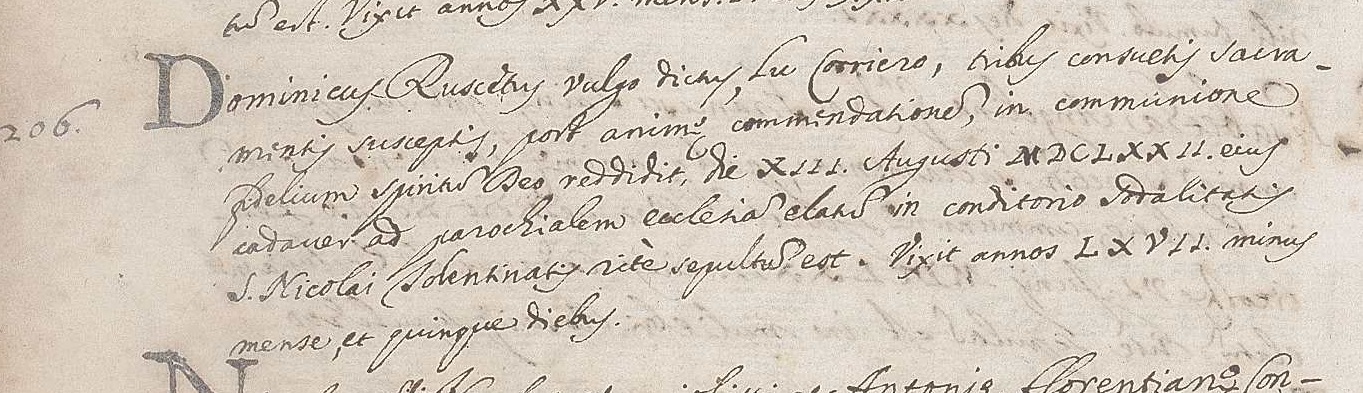 tũ est. Vixit annos XXV. mens.
206.
Dominicus Ruscétus vulgo dictus, Lu Corriero, tribus consuetis sacra-
mentis susceptis, post animę commendationẽ, in communione
fidelium spiritũ Deo reddidit, die XIII. Augusti MDCLXXII. eius
cadauer ad parochialem ecclesiã elatũ in conditorio sodalitatis
S. Nicolai Tolentinatis ritè sepultũ est. Vixit annos LXVII. minus
mense, et quinque diebus.
N Antonia Florentiano Con-